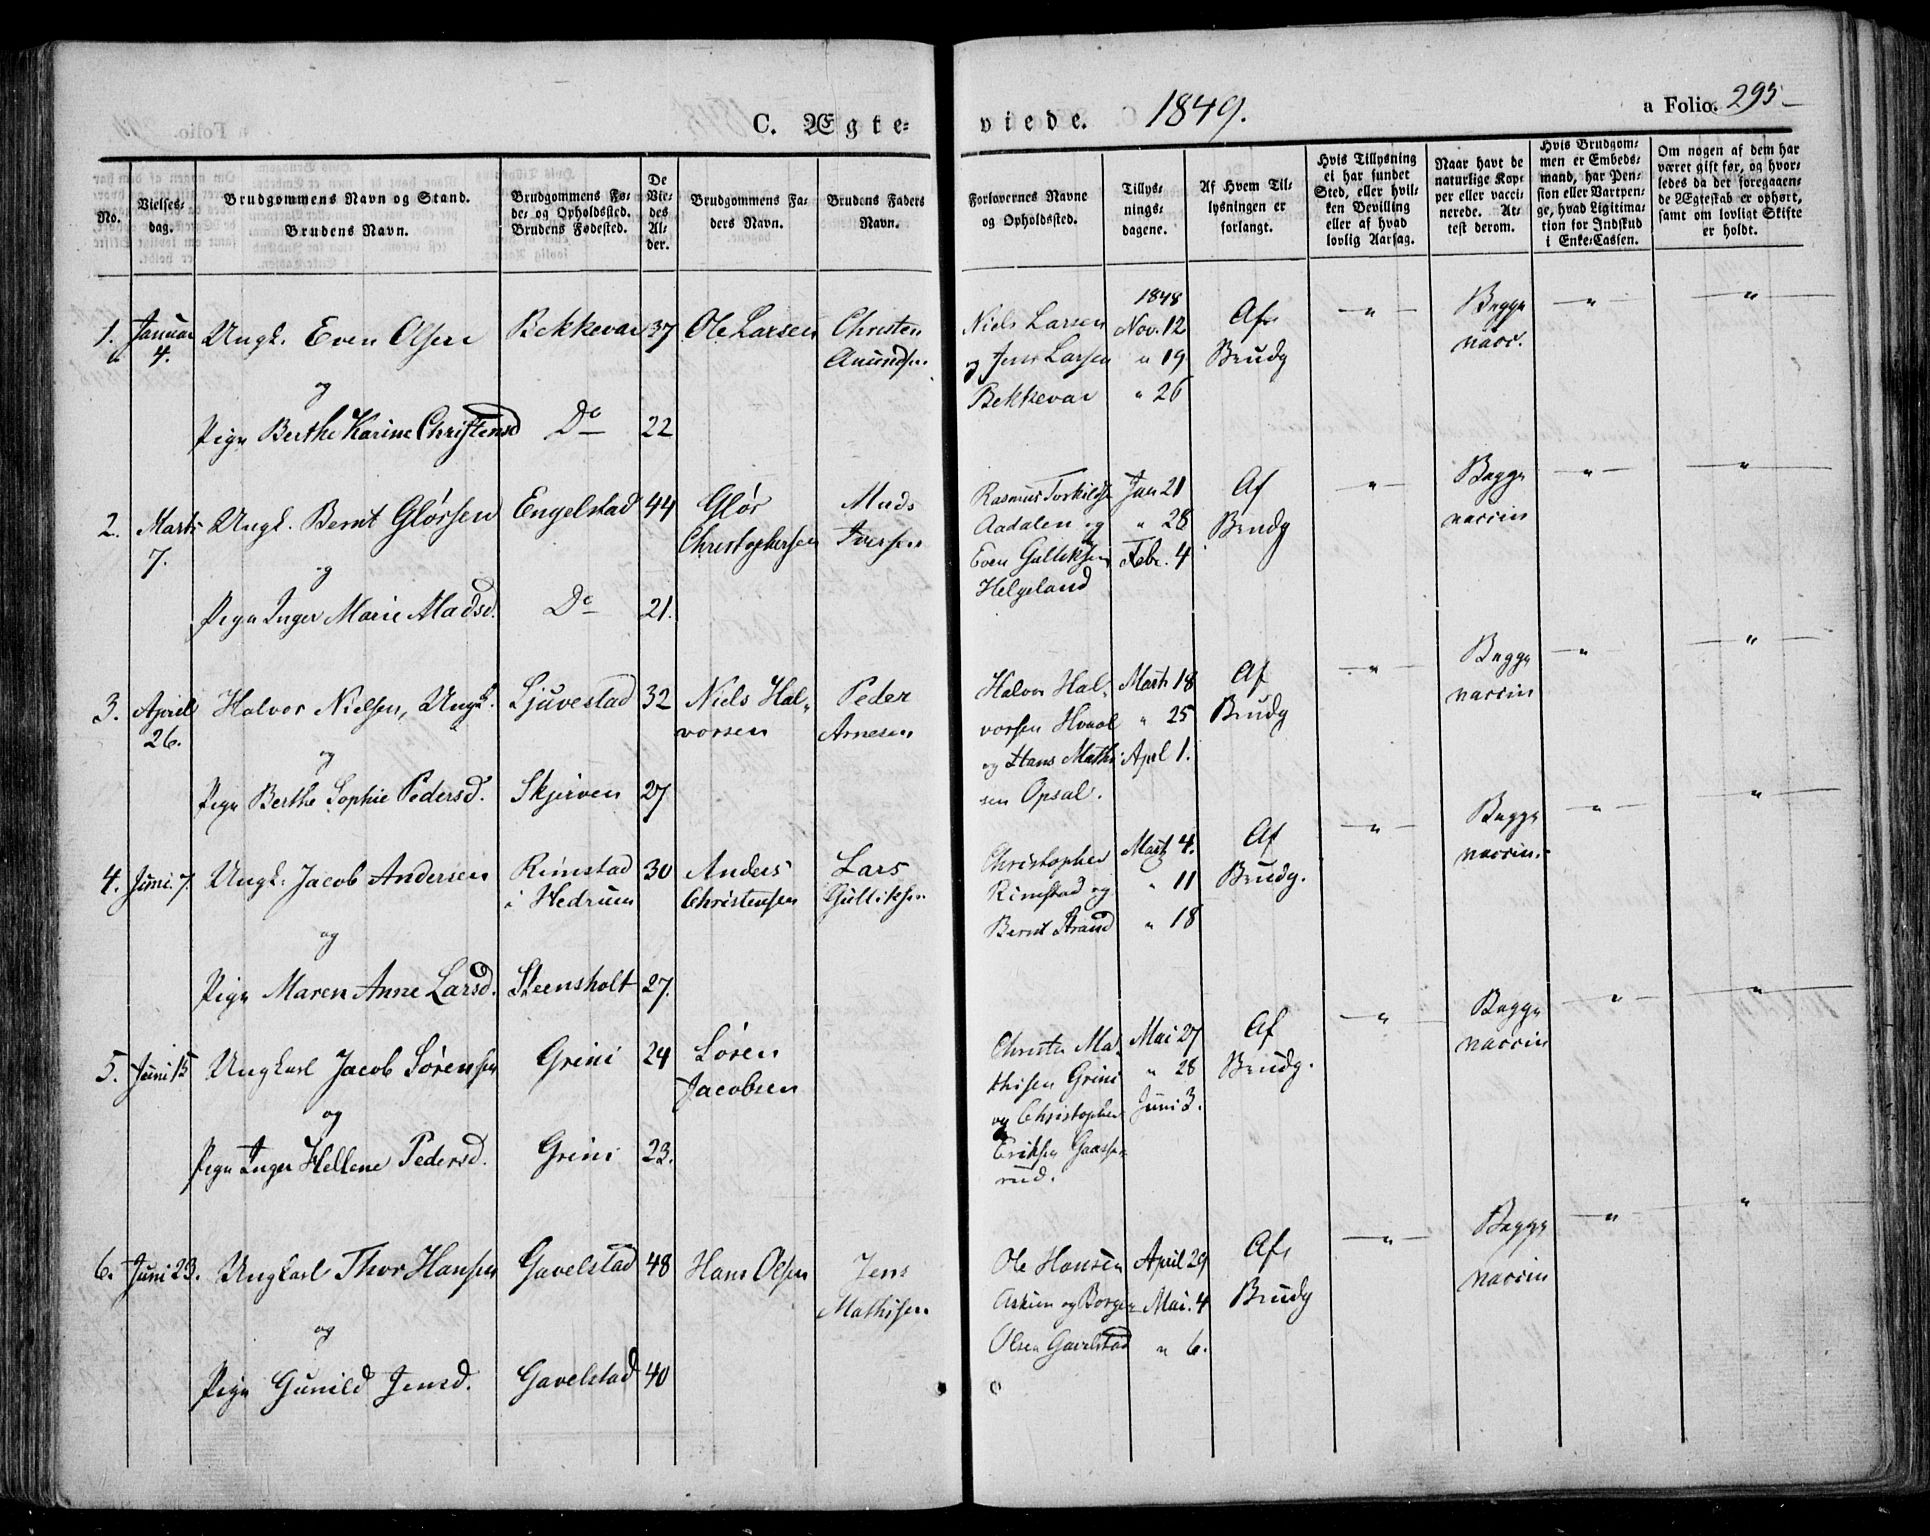 C. Ægte-
viede. 1849.
a Folio. 295
No.
Vielses-
dag.
Brudgommens Navn og Stand.
Brudens Navn.
Brudgommens Fø-
de- og Opholdssted.
Brudens Fødested.
De
Vie-
des
Al-
der.
Brudgommens Fa-
ders Navn.
Brudens Faders
Navn.
Forlovernes Navne
og Opholdssted.
Tillys-
nings-
dagene.
Af Hvem Til-
lysningen er
forlangt.
Hvis Tillysning
ei har fundet
Sted, eller hvil-
ken Bevilling
eller af hvad
lovlig Aarsag.
Naar havt de
naturlige Kop-
per eller vacci-
nerede. At-
test derom.
Hvis Brudgom-
men er Embeds-
mand, har Pen-
sion eller Vartpen-
ge, hvad Ligitima-
tion for Indskud
i Enke-Cassen.
Om nogen af dem har
været gift før, og hvor-
ledes da det foregaaen-
de Ægteskab er ophørt,
samt om lovligt Skifte
er holdt.
1. Januar
4.
Ungk. Even Olsen
og
Pige Berthe Karine Christensd
Bekkevar 37
Do 22
Ole Larsen
Christen
Amundsen
Niels Larsen
og Jens Larsen
Bekkevar
1848
Nov. 12
" 19
" 26
Af
Brudg
"
Begge
vacc.
"
"
2. Marts
7.
Ungk. Bernt Glørsen
og
Pige Inger Marie Madsd.
Engelstad 44
Do 21.
Glør
Christophersen
Mads
Iversen
Rasmus Torkilds
Aadalen og
Even Gulliksen
Helgeland
Jan 21
" 28
Febr. 4
Af
Brudg
"
Begge
vaccin
"
"
3. April
26.
Halvor Nielsen, Ungk.
og
Pige Berthe Sophie Pedersd.
Ljuvestad 32
Skjerven 27
Niels Hal-
vorsen
Peder
Arnesen
Halvor Hal-
vorsen Hvaal
og Hans Mathi-
sen Opsal.
Marts 18
" 25
April 1.
Af
Brudg
"
Begge
vaccin
"
"
4. Juni 7.
Ungk. Jacob Andersen
og
Pige Maren Anne Larsd.
Rimstad
i Hedrum 30
Steensholt 27.
Anders
Christensen
Lars
Gulliksen
Christopher
Rimstad og
Bernt Strand
Marts 4.
" 11
" 18
Af
Brudg.
"
Begge
vaccin.
"
"
5. Juni 15
Ungkarl Jacob Sørensen
og
Pige Inger Hellene Pedersd.
Grini 24
Grini 23.
Søren
Jacobsen
Christen Mat-
thisen Grini
og Christopher
Eriksen Gaasse-
rud.
Mai 27
" 28
Juni 3.
Af
Brudg.
"
Begge
vaccin
"
"
6. Juni 23.
Ungkarl Thor Hansen
og
Pige Gunild Jensd.
Gavelstad 48
Gavelstad 40
Hans Olsen
Jens
Mathisen
Ole Hansen
Askim og Borger
Olsen Gavelstad
April 29
Mai. 4
" 6.
Af
Brudg
"
Begge
vaccin
"
"